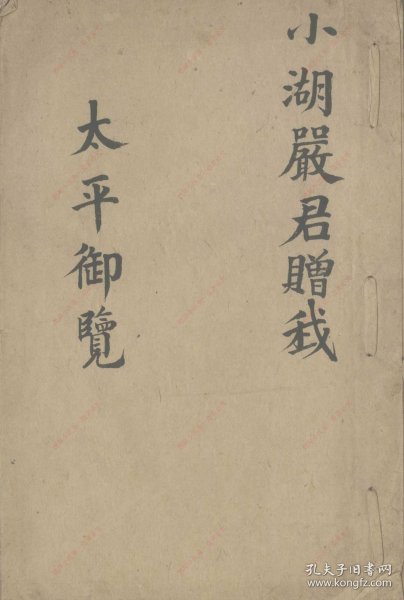 小湖嚴君贈我
太平御覽
孔夫子旧书网
www.kongfz.com